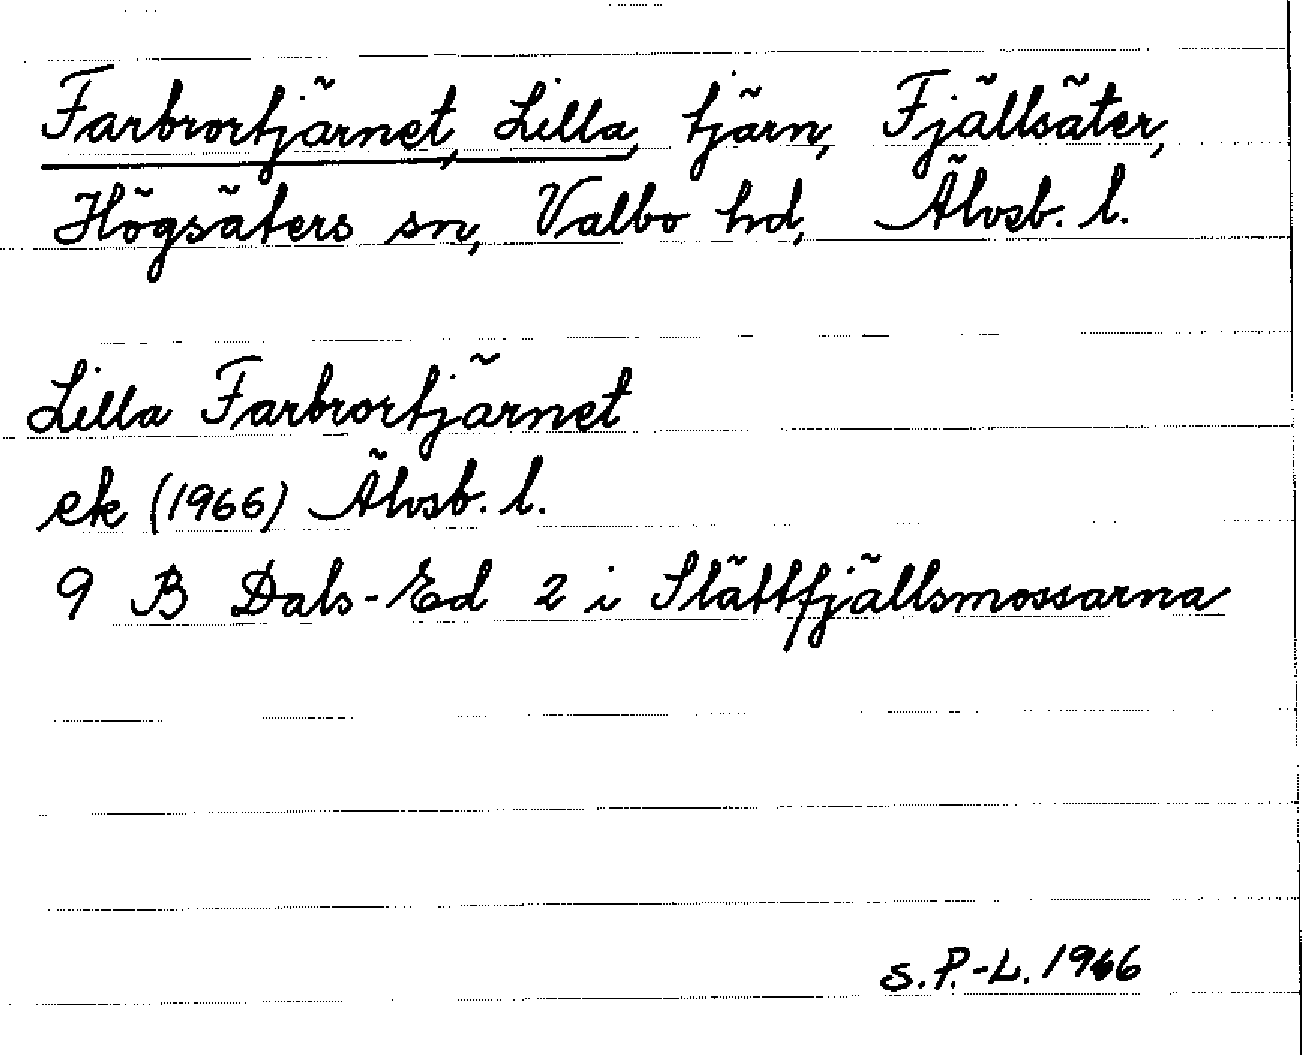 Farbrortjärnet, Lilla, tjärn, Fjällsäter,
Högsäters sn, Valbo hd, Älvsb. l.
Lilla Farbrortjärnet
ek (1966) Älvsb. l.
9 B Dals-Ed 2 i Slättfjällsmossarna
S.P.-L. 1966